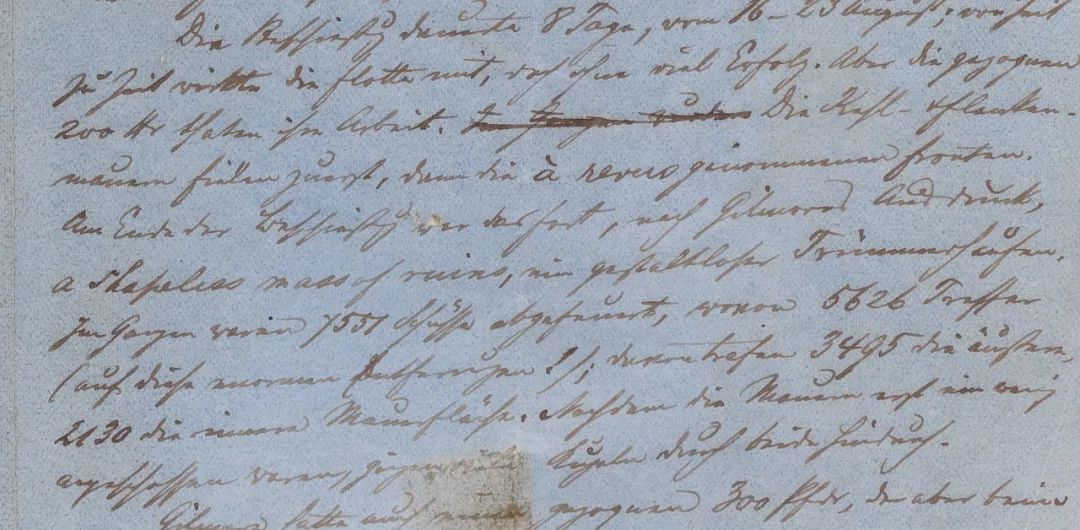 Die Beschießung dauerte 8 Tage, vom 16–23 August; von Zeit
zu Zeit wirkte die Flotte mit, doch ohne viel Erfolg. Aber die gezognen
200 Pfr thaten ihre Arbeit. Die Kehl- & Flanken-
mauern fielen zuerst, dann die à revers genommenen Fronten.
Am Ende der Beschießung war das Fort, nach Gilmores Ausdruck,
a shapeless mass of ruins, ein gestaltloser Trümmerhaufen.
Im Ganzen waren 7551 Schüsse abgefeuert, wovon 5626 Treffer
(auf diese enormen Entfernungen!); davon trafen 3495 die äußere,
2130 die innere Mauerfläche. Nachdem die Mauern erst ein wenig
angeschossen waren, gingen viele Kugeln durch beide hindurch.
Gilmore hatte auch einen gezognen 300 Pfdr, der aber beim